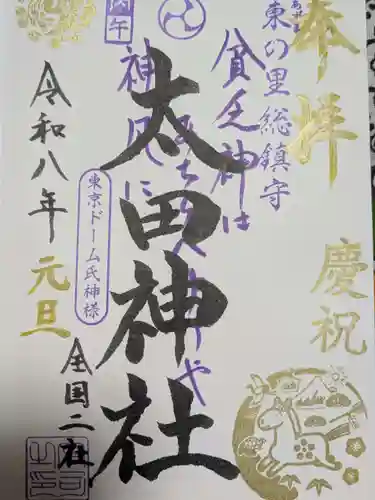 奉拝
慶祝
あずま
東の里総鎮守
貧乏神は
神風に
丙午
太田神社
東京ドーム氏神様
令和八年
元旦
全国二社